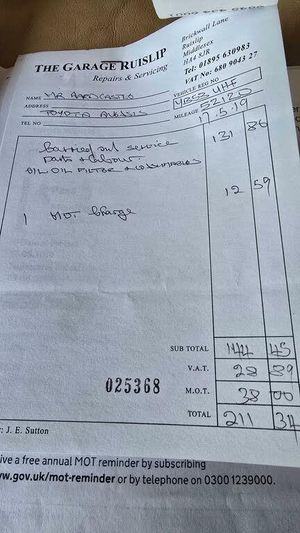 THE GARAGE RUISLIP
Repairs & Servicing
Brickwall Lane
Ruislip
Middlesex
HA4 8JR
Tel: 01895 630983
VAT No: 680 9043 27
NAME MR
ADDRESS TOYOTA
TEL NO
VEHICLE REG NO
MILEAGE 52120
17.5.19
Carried out service 131 86
Parts & labour
OIL OIL FILTER & 
12 59
1 MOT Charge
SUB TOTAL 144 45
V.A.T. 28 89
M.O.T. 38 00
TOTAL 211 34
025368
J. E. Sutton
ive a free annual MOT reminder by subscribing
w.gov.uk/mot-reminder or by telephone on 0300 1239000.